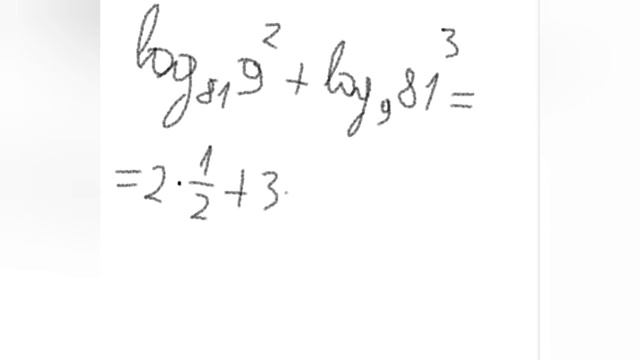 log₈₁9² + log₉81³ =
= 2 · 1/2 + 3 ·